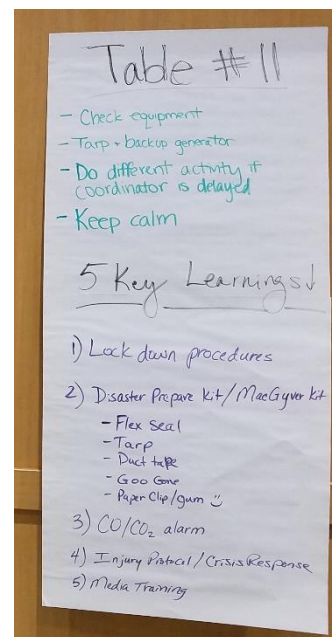 Table #11
- Check equipment
- Tarp + backup generator
- Do different activity if
coordinator is delayed
- Keep calm
5 Key Learnings↓
1) Lock down procedures
2) Disaster Prepare Kit/MacGyver Kit
- Flex Seal
- Tarp
- Duct tape
- Goo Gone
- Paper Clip/gum ☺
3) CO/CO₂ alarm
4) Injury Protocol/Crisis Response
5) Media Training